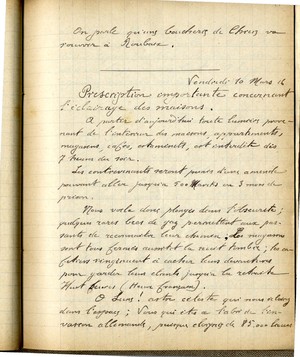 On parle qu'une boucherie de Chiens va
s'ouvrir à Roubaix.
Vendredi 10 Mars 16
Prescription importante concernant
l'éclairage des maisons.
A partir d'aujourd'hui toute lumière prove-
nant de l'intérieur des maisons, appartements,
magasins, cafés, estaminets, est interdite dès
7 heures du soir.
Les contrevenants seront punis d'une amende
pouvant aller jusqu'à 500 Marks ou 3 mois de
prison.
Nous voilà donc plongés dans l'obscurité;
quelques rares becs de gaz permettent aux pas-
sants de reconnaître leur chemin. Les magasins
sont tous fermés aussitôt la nuit tombée; les ca-
fetiers s'ingénient à cacher leurs
pour garder leurs clients jusqu'à la retraite
Huit heures (Heure française).
O Lune! astre céleste qui nous
dans l'espace; Vous qui êtes à l'abri de l'en-
vahisseur allemand, puisque éloignée de 85.000 lieues